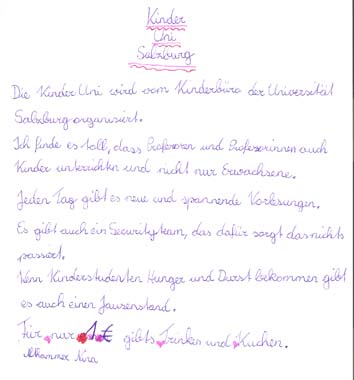 Kinder
Uni
Salzburg
Die Kinder Uni wird vom Kinderbüro der Universität
Salzburg organisiert.
Ich finde es toll, dass Professoren und Professorinnen auch
Kinder unterichten und nicht nur Erwachsene.
Jeden Tag gibt es neue und spannende Vorlesungen.
Es gibt auch ein Securityteam, das dafür sorgt das nichts
passiert.
Wenn Kinderstudenten Hunger und Durst bekommen gibt
es auch einen Jausenstand.
Für nur 1€ gibts Trinken und Kuchen.
Nina